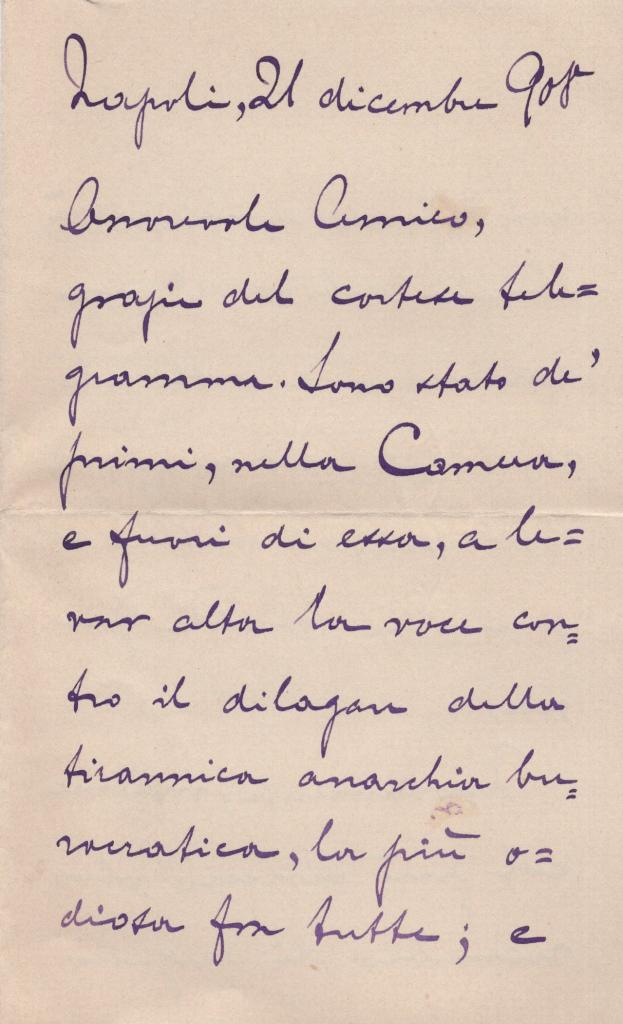 Napoli, 21 dicembre 908
Onorevole Amico,
grazie del cortese tele=
gramma. Sono stato de'
primi, nella Camera,
e fuori di essa, a le=
var alta la voce con=
tro il dilagare della
tirannica anarchia bu=
rocratica, la più o=
diosa fra tutte; e